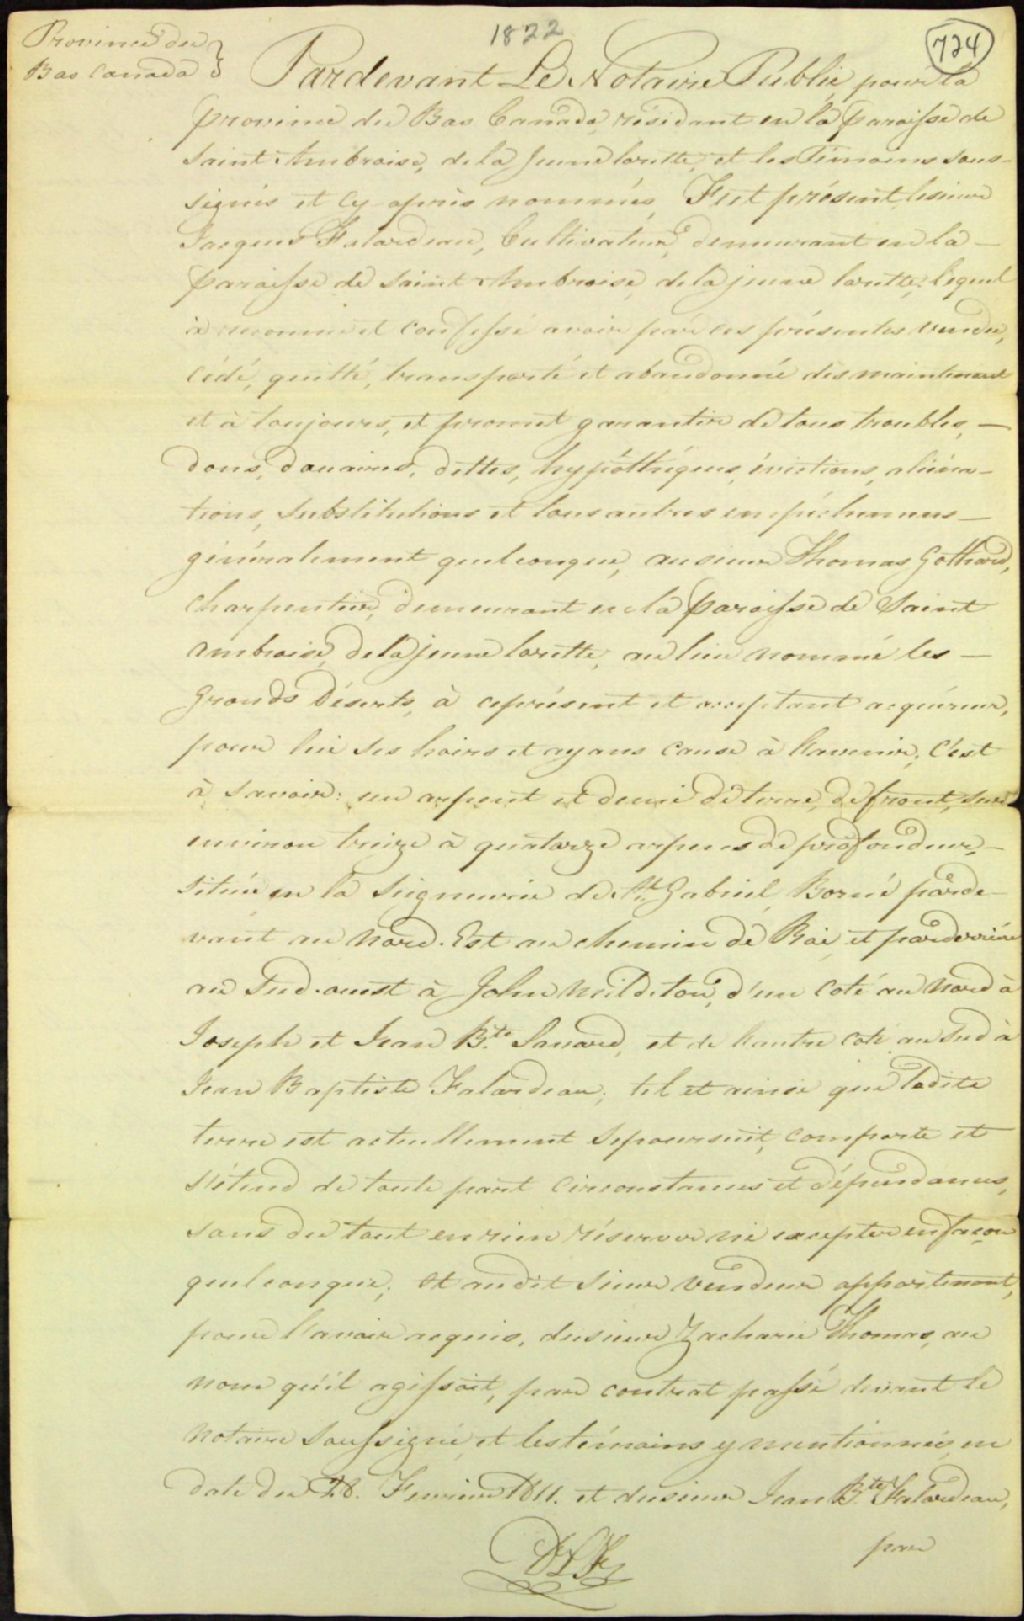 1822
724
Province du
Bas Canada
Pardevant Le Notaire Public pour la
province du Bas Canada, résidant en la paroisse de
Saint Ambroise, de la Jeune lorette, et les Témoins sous-
signés et cy après nommés, Fut présent, lesieur
Jacques Falardeau, Cultivateur, demeurant en la
paroisse de Saint Ambroise, de la jeune lorette; lequel
à reconnu et confessé avoir par ces présentes vendu,
cédé, quitté, transporté et abandonné dès maintenant
et à toujours, et promet garantir de tous troubles,
dons, douaires, dettes, hypôthèques, évictions, aliéna-
tions, substitutions et tous autres empêchemens
généralement quelconque, au sieur Thomas Gothard,
charpentier, demeurant en la paroisse de Saint
Ambroise, de la jeune lorette, au lieu nommé les
Grands Déserts, à ceprésent et acceptant acquéreur,
pour lui ses hoirs et ayans cause à l'avenir; C'est
à savoir: un arpent et demie de terre, de front, sur
environ treize à quatorze arpens de profondeur,
située en la Seigneurie de St. Gabriel, Borné parde-
vant au Nord. Est au chemin de Roi, et par derrière
au Sud. ouest à John, d'un coté au Nord à
Joseph et Jean Bte. Savard, et de l'autre coté au Sud à
Jean Baptiste Falardeau; tel et ainsi que ladite
terre est actuellement sepoursuit, comporte et
s'étend de toute part circonstances et dépendances,
sans du tout en rien réserver ni excepter en façon
quelconque; et audit Sieur vendeur appartenant,
pour l'avoir acquis, du sieur Zacharie Thomas, au
nom qu'il agissoit, par contrat passé devant le
Notaire Soussigné, et les témoins y mentionnés, en
date du 28. Fevrier 1811. et du sieur Jean Bte. Falardeau,
par